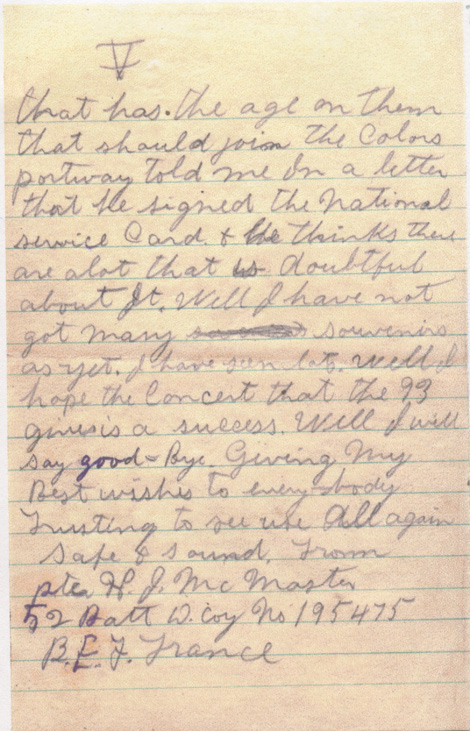 V
that has. the age on them
that should join the Colors
portway told me In a letter
that he signed the national
service Card & he thinks there
are alot that is doubtful
about It. Well I have not
got many souvenirs
as yet. I have seen lots. Well I
hope the Concert that the 93
gives is a success. Well I will
say good-Bye. Giving My
Best wishes to every-body
Trusting to see use All again
Safe & sound. From
pte H. J. Mc Master
52 Batt D. Coy No 195475
B.E.F. France